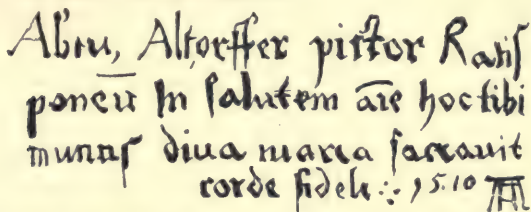 Albtu, Altorffer pictor Ratiſ
ponēn̄ In ſalutem āīe hoc tibi
munus diua maria ſacrauit
corde fideli ∴ 1510 AA